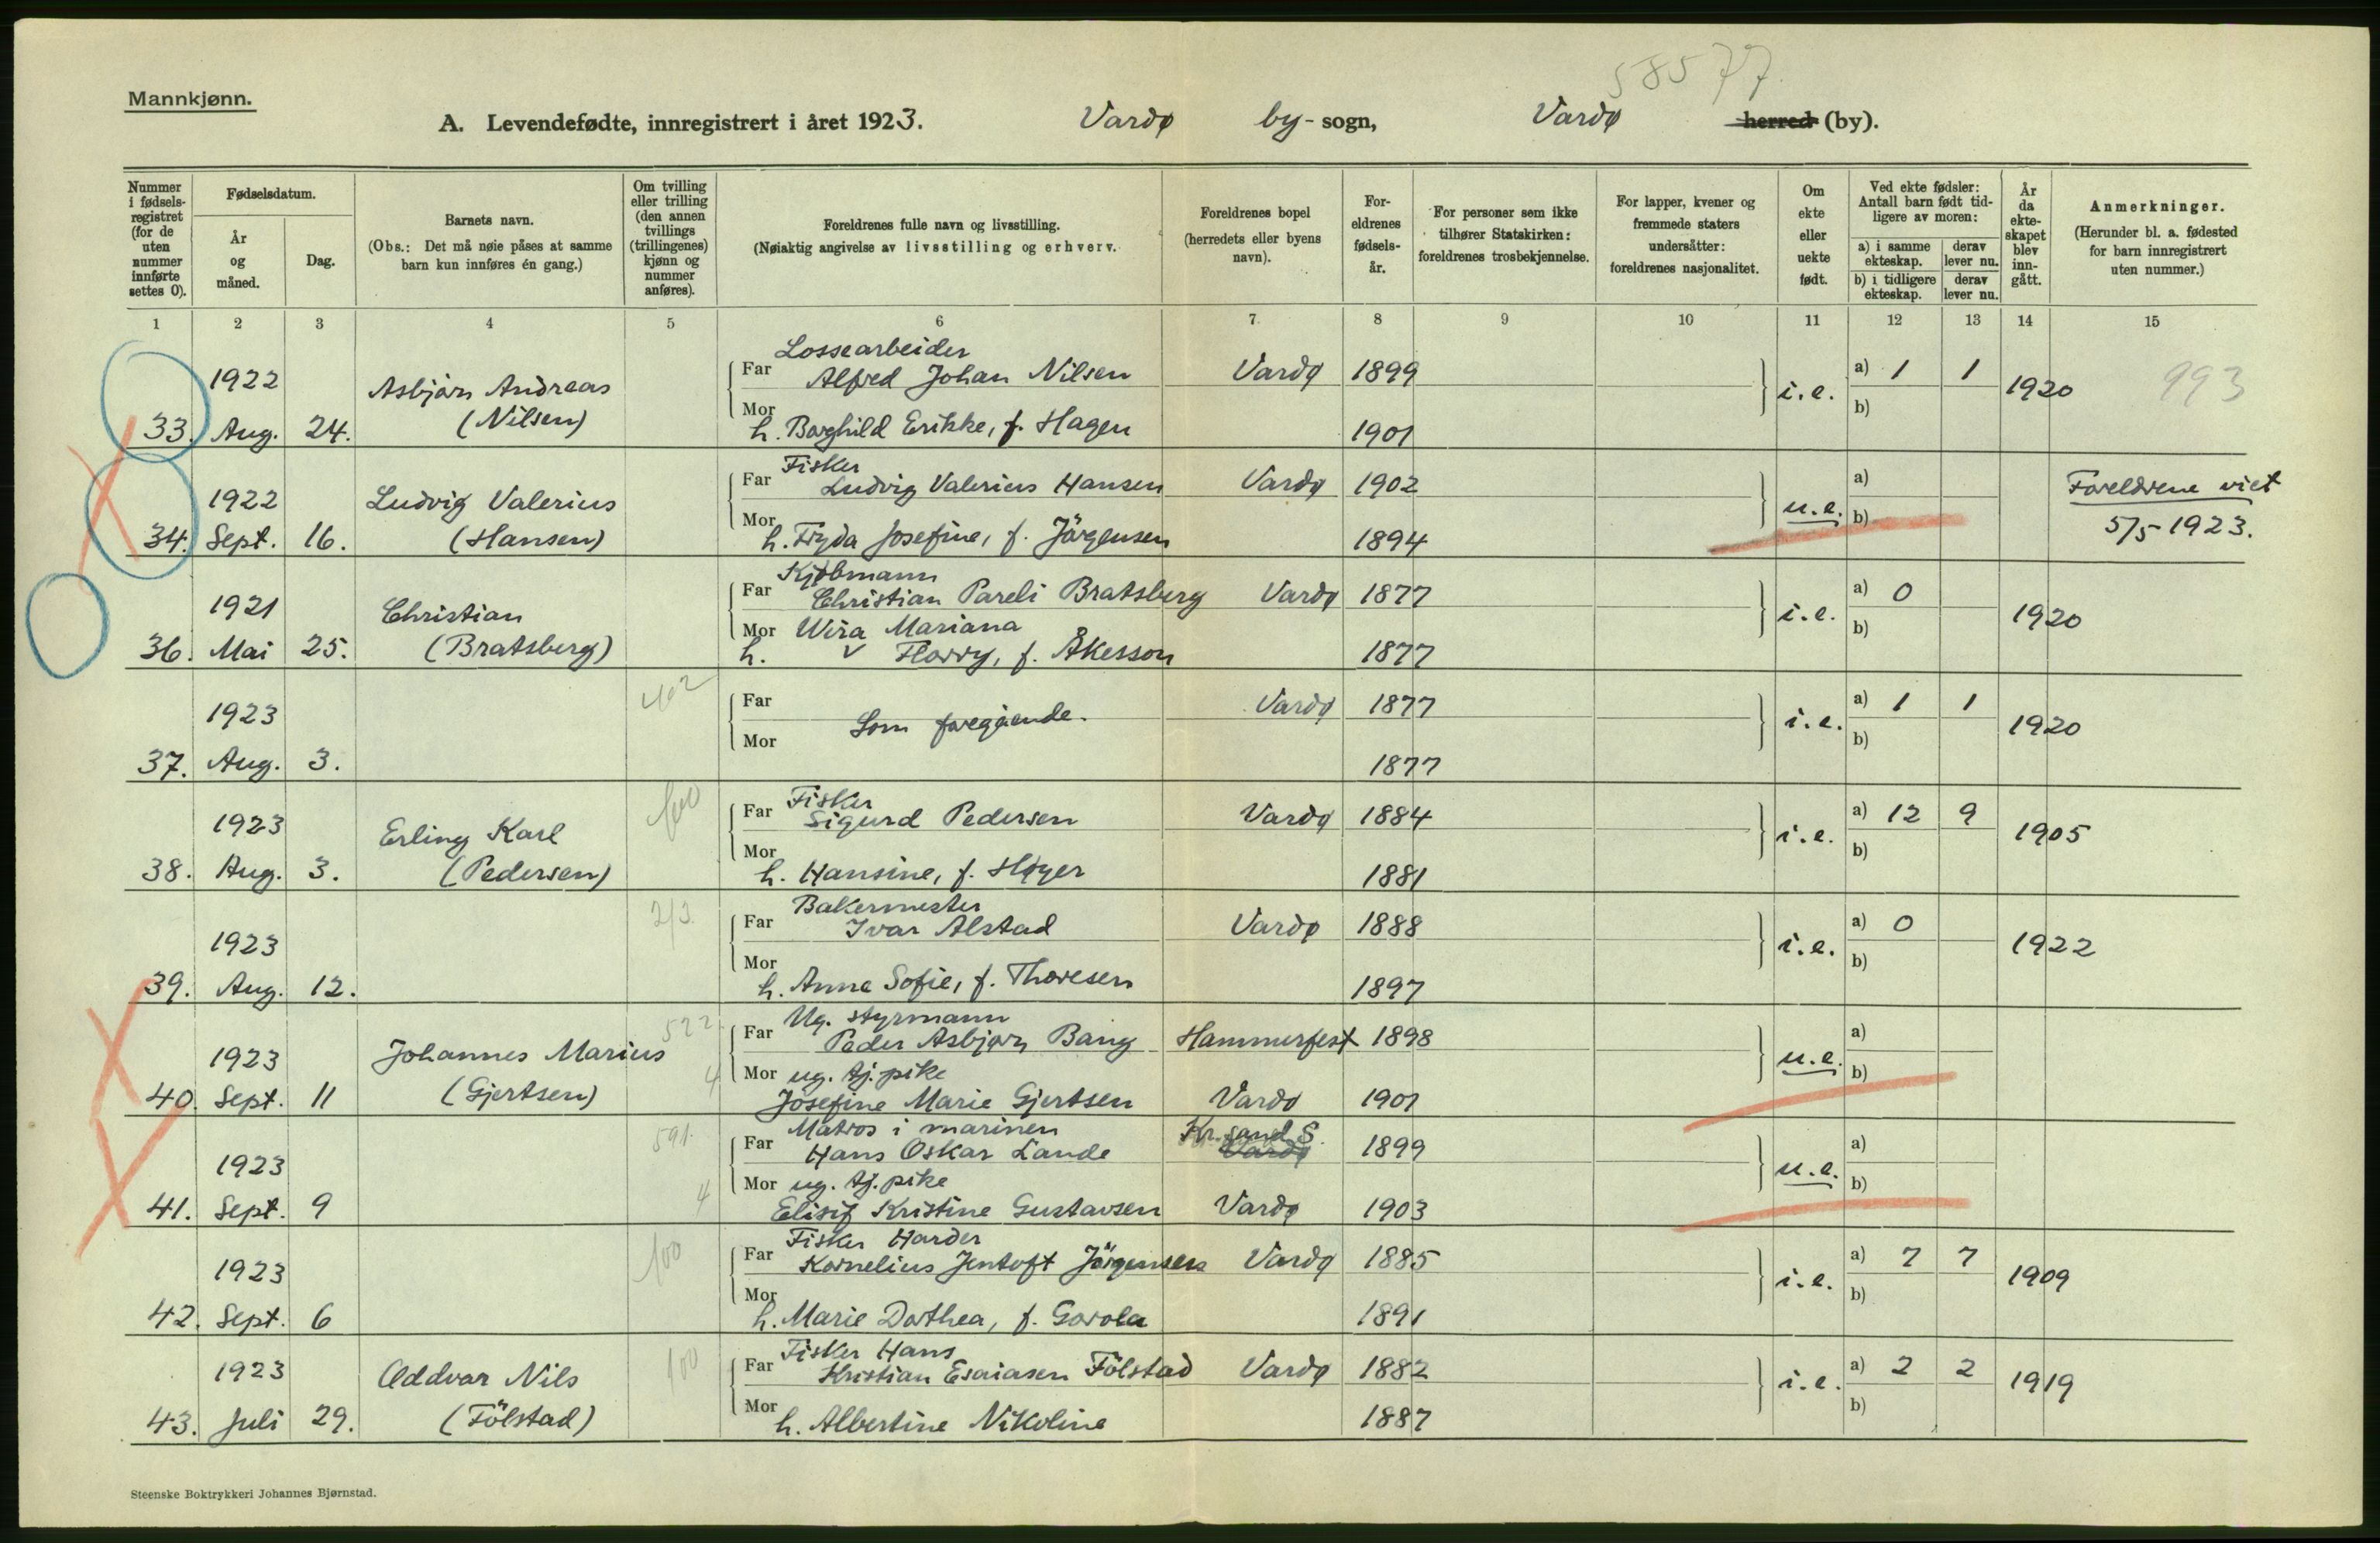 58577.
Mannkjønn.
A. Levendefødte, innregistrert i året 1923. Vardø by- sogn, Vardø herred (by).
Nummer i fødsels-registret (for de uten nummer innførte settes 0).
Fødselsdatum.
År og måned.
Dag.
Barnets navn.
(Obs.: Det må nøie påses at samme barn kun innføres én gang.)
Om tvilling eller trilling (den annen tvillings (trillingenes) kjønn og nummer anføres).
Foreldrenes fulle navn og livsstilling.
(Nøiaktig angivelse av livsstilling og erhverv.
Foreldrenes bopel (herredets eller byens navn).
For-eldrenes fødsels-år.
For personer som ikke tilhører Statskirken: foreldrenes trosbekjennelse.
For lapper, kvener og fremmede staters undersåtter: foreldrenes nasjonalitet.
Om ekte eller uekte født.
Ved ekte fødsler: Antall barn født tid-ligere av moren:
a) i samme ekteskap.
derav lever nu.
b) i tidligere ekteskap.
derav lever nu.
År da ekte-skapet blev inn-gått.
Anmerkninger.
(Herunder bl. a. fødested for barn innregistrert uten nummer.)
1 2 3 4 5 6 7. 8 9 10 11 12 13 14 15
Lossearbeider
1922 Asbjørn Andreas Far Alfred Johan Nilsen Vardø 1899 i.e. a) 1 1 1920 993
33. Aug. 24. (Nilsen) Mor h. Borghild Erikke, f. Hagen 1901 b)
Fisker
1922 Ludvig Valerius Far Ludvig Valerius Hansen Vardø 1902 u.e. a) Foreldrene viet
34. Sept. 16. (Hansen) Mor h. Fryda Josefine, f. Jörgensen 1894 b) 5/5 1923.
Kjøbmann
1921 Christian Far Christian Pareli Bratsberg Vardø 1877 i.e. a) 0 1920
Mor Wira Mariana b)
36. Mai 25. (Bratsberg) h. v Florry, f. Åkesson 1877
402
1923 Far Som foregående. Vardø 1877 i.e. a) 1 1 1920
37. Aug. 3. Mor 1877 b)
100 Fisker
1923 Erling Karl Far Sigurd Pedersen Vardø 1884 i.e. a) 12 9 1905
38. Aug. 3. (Pedersen) Mor h. Hansine, f. Høyer 1881 b)
213 Bakermester
1923 Far Ivar Alstad Vardø 1888 i.e. a) 0 1922
39. Aug. 12. Mor h. Anna Sofie, f. Thoresen 1897 b)
522 Ug. styrmann
1923 Johannes Marius Far Peder Asbjørn Bang Hammerfest 1898 u.e. a)
4 Mor ug. tj.pike b)
40. Sept. 11 (Gjertsen) Josefine Marie Gjertsen Vardø 1901
591. Matros i marinen Kr.sand S.
1923 Far Hans Oskar Lande Vardø 1899 u.e. a)
4 Mor ug. tj.pike b)
41. Sept. 9 Elisif Kristine Gustavsen Vardø 1903
100 Fisker Harder
1923 Far Kornelius Jentoft Jörgensen Vardø 1885 i.e. a) 7 7 1909
42. Sept. 6 Mor h. Marie Dorthea, f. Gorola 1891 b)
100 Fisker Hans
1923 Oddvar Nils Far Kristian Esaiasen Fölstad Vardø 1882 i.e. a) 2 2 1919
43. Juli 29. (Fölstad) Mor h. Albertine Nikoline 1887 b)
Steenske Boktrykkeri Johannes Bjørnstad.